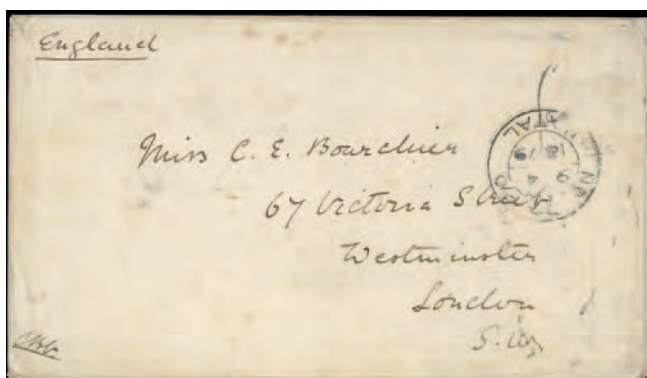 England
Miss C. E. Bourchier
67 Victoria Street
Westminster
London
S. W.
NATAL
9 4
1879